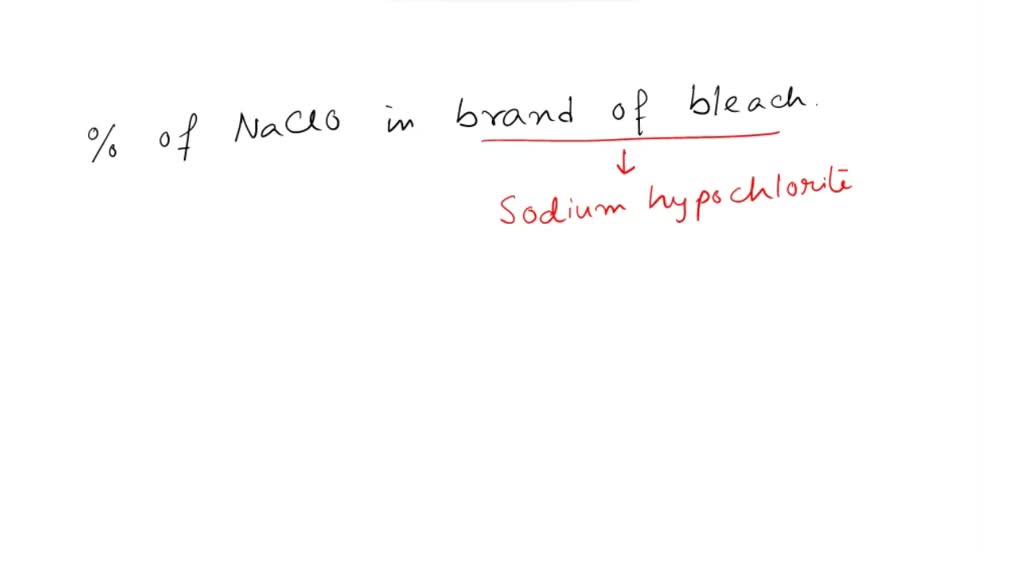 % of NaClO in brand of bleach.
↓
Sodium hypochlorite